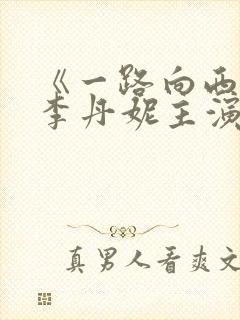 《一路向西
李丹妮主演
真男人看爽文